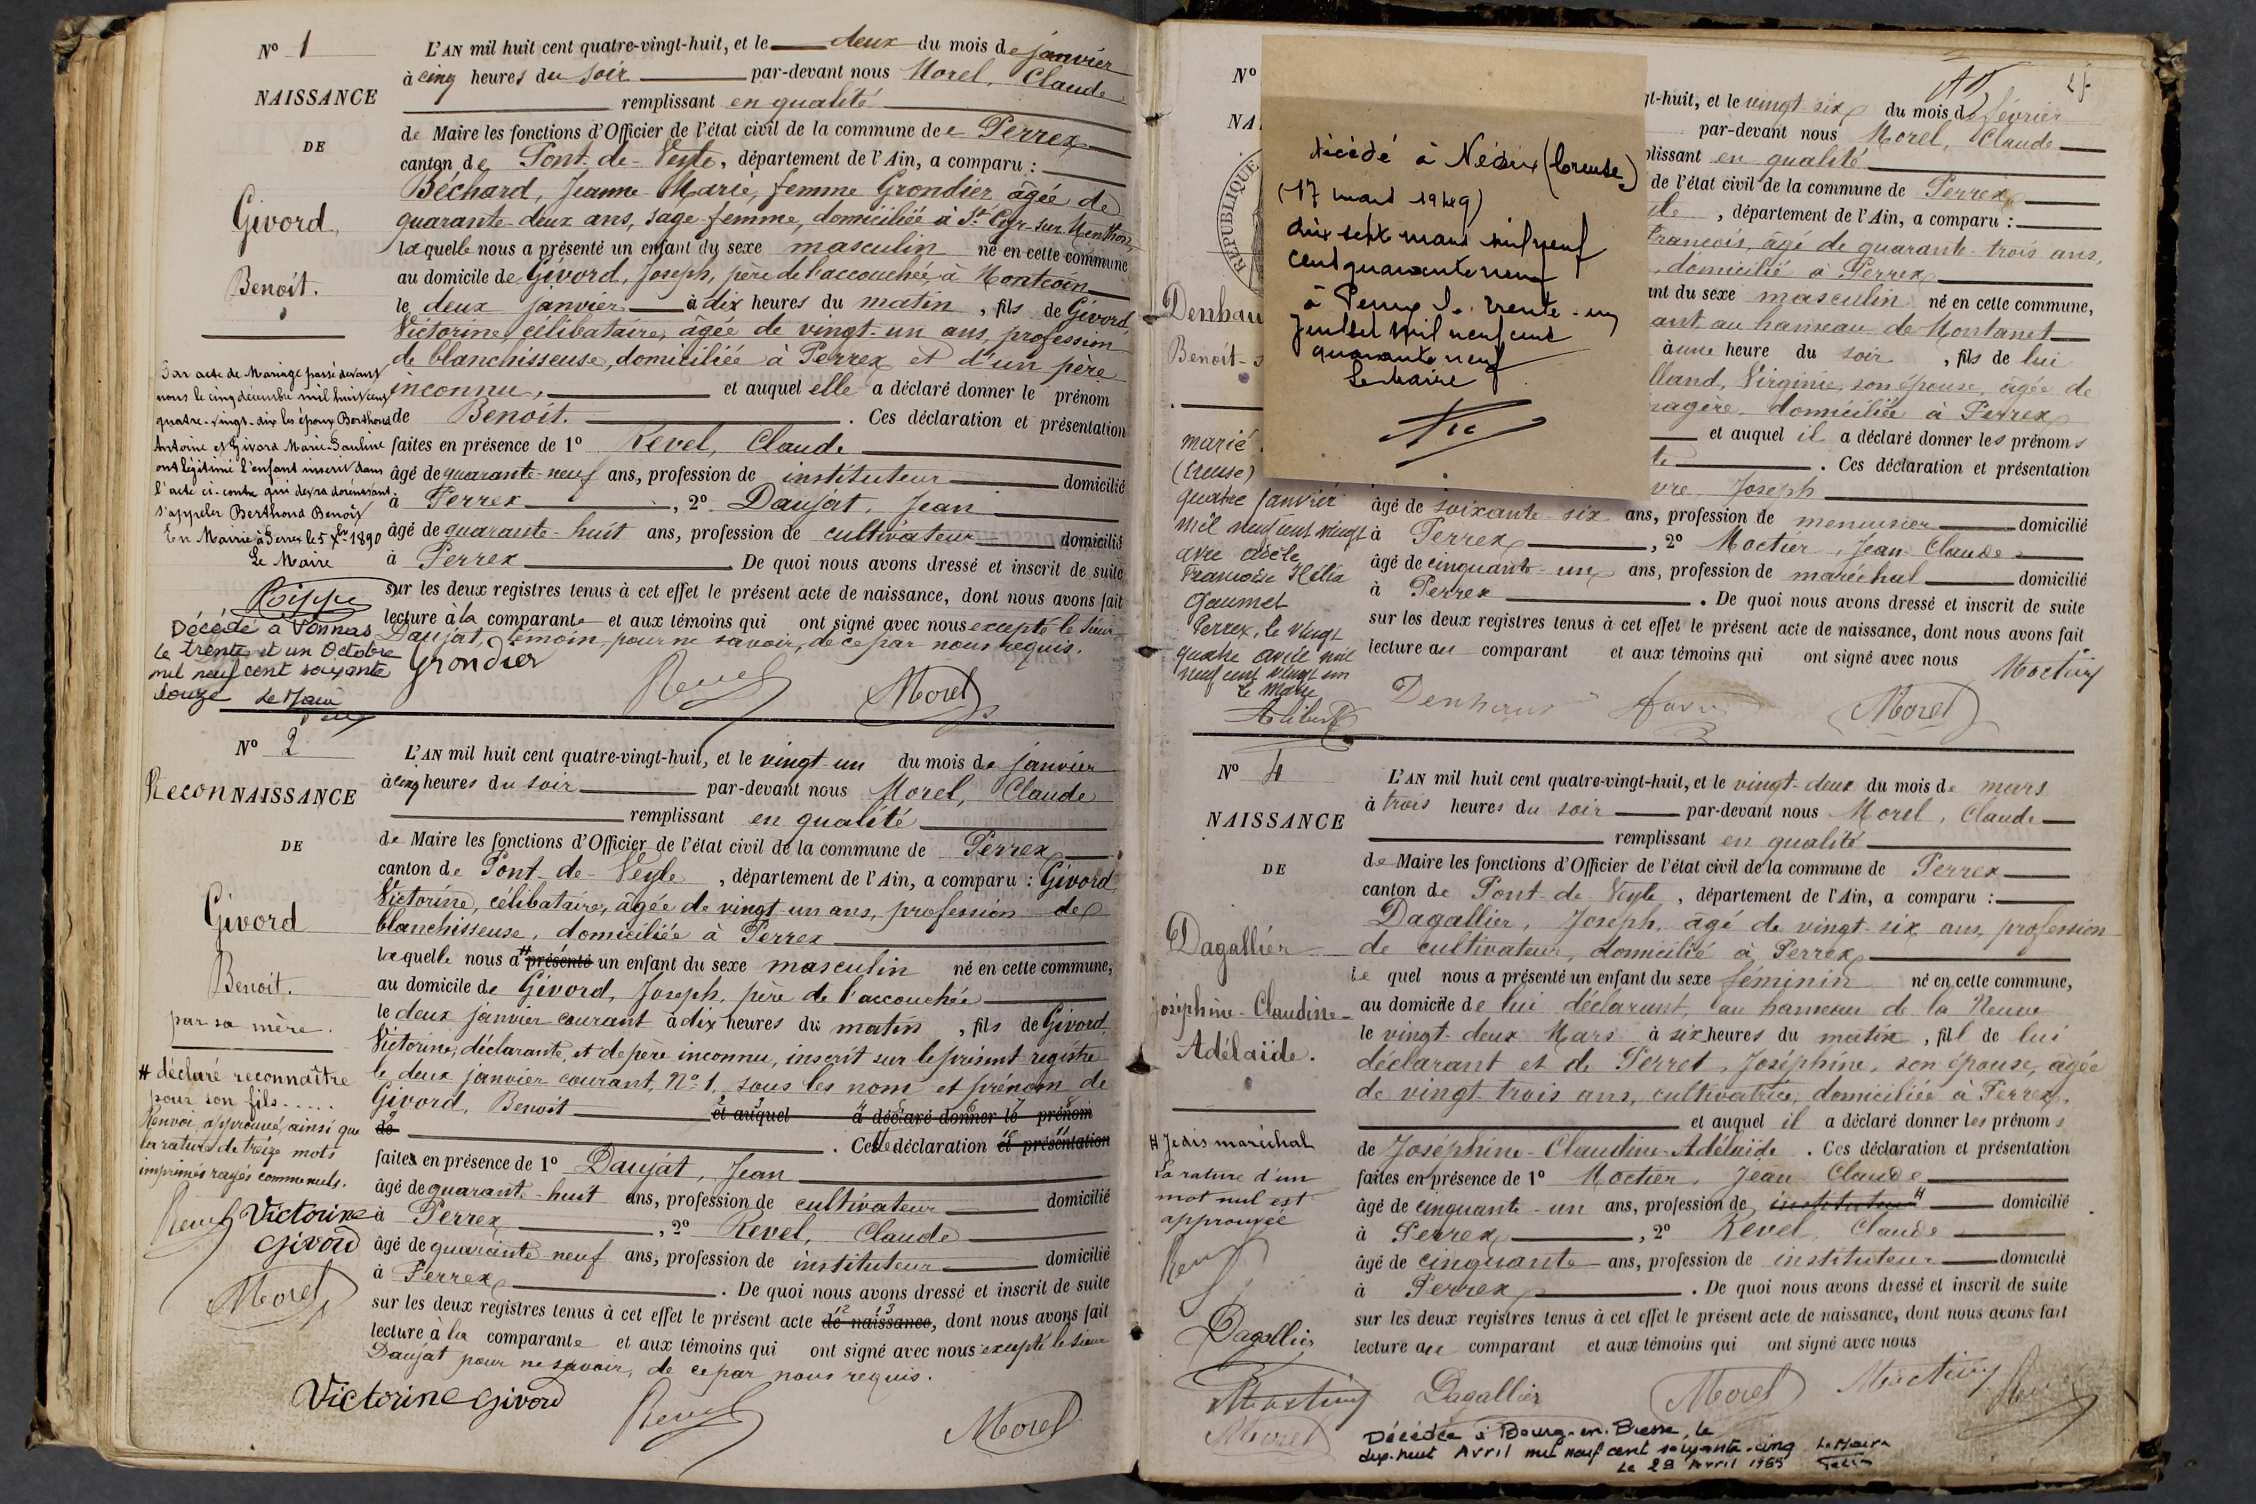 Nº 1
NAISSANCE
DE
Givord,
Benoit.
L'AN mil huit cent quatre-vingt-huit, et le deux du mois de janvier
à cinq heures du soir par-devant nous Morel, Claude
remplissant en qualité
de Maire les fonctions d'Officier de l'état civil de la commune de Perrex
canton de Pont-de-Veyle, département de l'Ain, a comparu :
Béchard, Jeanne Marie, femme Grondier, âgée de
quarante-deux ans, sage-femme, domiciliée à St Cyr-sur-Menthon
laquelle nous a présenté un enfant du sexe masculin né en cette commune
au domicile de Givord, Joseph, père de l'accouchée, à Montcoin
le deux janvier à dix heures du matin, fils de Givord,
Victorine, célibataire, âgée de vingt-un ans, profession
de blanchisseuse, domiciliée à Perrex et d'un père
inconnu, et auquel elle a déclaré donner le prénom
de Benoit. Ces déclaration et présentation
faites en présence de 1º Revel, Claude
âgé de quarante-neuf ans, profession de instituteur domicilié
à Perrex, 2º Daujat, Jean
âgé de quarante-huit ans, profession de cultivateur domicilié
à Perrex De quoi nous avons dressé et inscrit de suite
sur les deux registres tenus à cet effet le présent acte de naissance, dont nous avons fait
lecture à la comparante et aux témoins qui ont signé avec nous excepté le sieur
Daujat, témoin, pour ne savoir, de ce par nous requis.
Grondier
Revel
Morel
Par acte de Mariage passé devant
nous le cinq décembre mil huit cent
quatre-vingt-dix les époux Berthoud
Antoine et Givord Marie-Pauline
ont légitimé l'enfant inscrit dans
l'acte ci-contre qui devra dorénavant
s'appeler Berthoud Benoît
En Mairie à Perrex le 5 Xbre 1890
Le Maire
Décédé à Vonnas
le trente et un Octobre
mil neuf cent soixante
douze Le Maire
Nº 2
ReconNAISSANCE
DE
Givord
Benoit.
par sa mère.
L'AN mil huit cent quatre-vingt-huit, et le vingt-un du mois de janvier
à cinq heures du soir par-devant nous Morel, Claude
remplissant en qualité
de Maire les fonctions d'Officier de l'état civil de la commune de Perrex
canton de Pont-de-Veyle, département de l'Ain, a comparu : Givord
Victorine, célibataire, âgée de vingt-un ans, profession de
blanchisseuse, domiciliée à Perrex
laquelle nous a # présenté un enfant du sexe masculin né en cette commune,
au domicile de Givord, Joseph, père de l'accouchée
le deux janvier courant à dix heures du matin, fils de Givord,
Victorine, déclarante, et de père inconnu, inscrit sur le présent registre
le deux janvier courant, Nº 1, sous les nom et prénom de
Givord, Benoit et auquel a déclaré donner le prénom
de . Cette déclaration et présentation
faite en présence de 1º Daujat, Jean
âgé de quarante-huit ans, profession de cultivateur domicilié
à Perrex, 2º Revel, Claude
âgé de quarante-neuf ans, profession de instituteur domicilié
à Perrex. De quoi nous avons dressé et inscrit de suite
sur les deux registres tenus à cet effet le présent acte de naissance, dont nous avons fait
lecture à la comparante et aux témoins qui ont signé avec nous excepté le sieur
Daujat pour ne savoir, de ce par nous requis.
Victorine Givord
Revel
Morel
# déclaré reconnaître
pour son fils.....
Renvoi approuvé, ainsi que
la rature de treize mots
imprimés rayés comme nuls.
Revel Victorine
Givord
Morel
Nº
NA
RÉPUBLIQUE
Denhau
Benoit-
marié
(Creuse)
quatre janvier
mil neuf cent vingt
avec
Françoise Hélia
Gaumet
Perrex, le vingt
quatre avril mil
neuf cent vingt un
Le Maire
décédé à (Creuse)
(17 mars 1949)
dix sept mars mil neuf
cent quarante neuf
à Perrex le trente-un
juillet mil neuf cent
quarante neuf
Le Maire
gt-huit, et le vingt-six du mois de février
par-devant nous Morel, Claude
plissant en qualité
de l'état civil de la commune de Perrex
, département de l'Ain, a comparu :
François, âgé de quarante-trois ans,
, domicilié à Perrex
ant du sexe masculin né en cette commune,
ant au hameau de Montanet
à une heure du soir, fils de lui
lland, Virginie, son épouse, âgée de
nagère, domiciliée à Perrex
et auquel il a déclaré donner les prénoms
. Ces déclaration et présentation
vre, Joseph
âgé de soixante-six ans, profession de menuisier domicilié
à Perrex, 2º Moctier, Jean Claude
âgé de cinquante-un ans, profession de maréchal domicilié
à Perrex. De quoi nous avons dressé et inscrit de suite
sur les deux registres tenus à cet effet le présent acte de naissance, dont nous avons fait
lecture au comparant et aux témoins qui ont signé avec nous
Moctier
Morel
Nº 4
NAISSANCE
DE
Dagallier
Joséphine-Claudine-
Adélaïde.
L'AN mil huit cent quatre-vingt-huit, et le vingt-deux du mois de mars
à trois heures du soir par-devant nous Morel, Claude
remplissant en qualité
de Maire les fonctions d'Officier de l'état civil de la commune de Perrex
canton de Pont-de-Veyle, département de l'Ain, a comparu :
Dagallier, Joseph, âgé de vingt-six ans, profession
de cultivateur, domicilié à Perrex
lequel nous a présenté un enfant du sexe féminin né en cette commune,
au domicile de lui déclarant, au hameau de la Neuve
le vingt-deux Mars à six heures du matin, fil de lui
déclarant et de Perret, Joséphine, son épouse, âgée
de vingt-trois ans, cultivatrice, domiciliée à Perrex,
et auquel il a déclaré donner les prénoms
de Joséphine-Claudine-Adélaïde. Ces déclaration et présentation
faites en présence de 1º Moctier, Jean Claude
âgé de cinquante-un ans, profession de instituteur # domicilié
à Perrex, 2º Revel, Claude
âgé de cinquante ans, profession de instituteur domicilié
à Perrex. De quoi nous avons dressé et inscrit de suite
sur les deux registres tenus à cet effet le présent acte de naissance, dont nous avons fait
lecture au comparant et aux témoins qui ont signé avec nous
# Je dis maréchal
La rature d'un
mot nul est
approuvée
Revel
Dagallier
Moctier
Morel
Dagallier
Morel
Moctier
Revel
Décédée à Bourg-en-Bresse, le
dix-huit Avril mil neuf cent soixante-cinq Le Maire
Le 29 Avril 1965